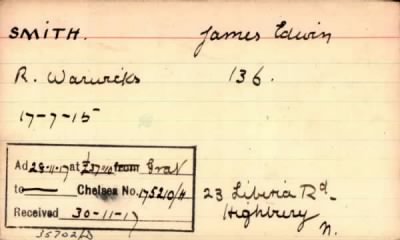 SMITH. James Edwin
R. Warwicks 136.
17-7-15
Ad 29-11-17 at from Grat
to Chelsea No. 175210/4
Received 30-11-17
23 Liberia Rd.
Highbury
N.
35702/D